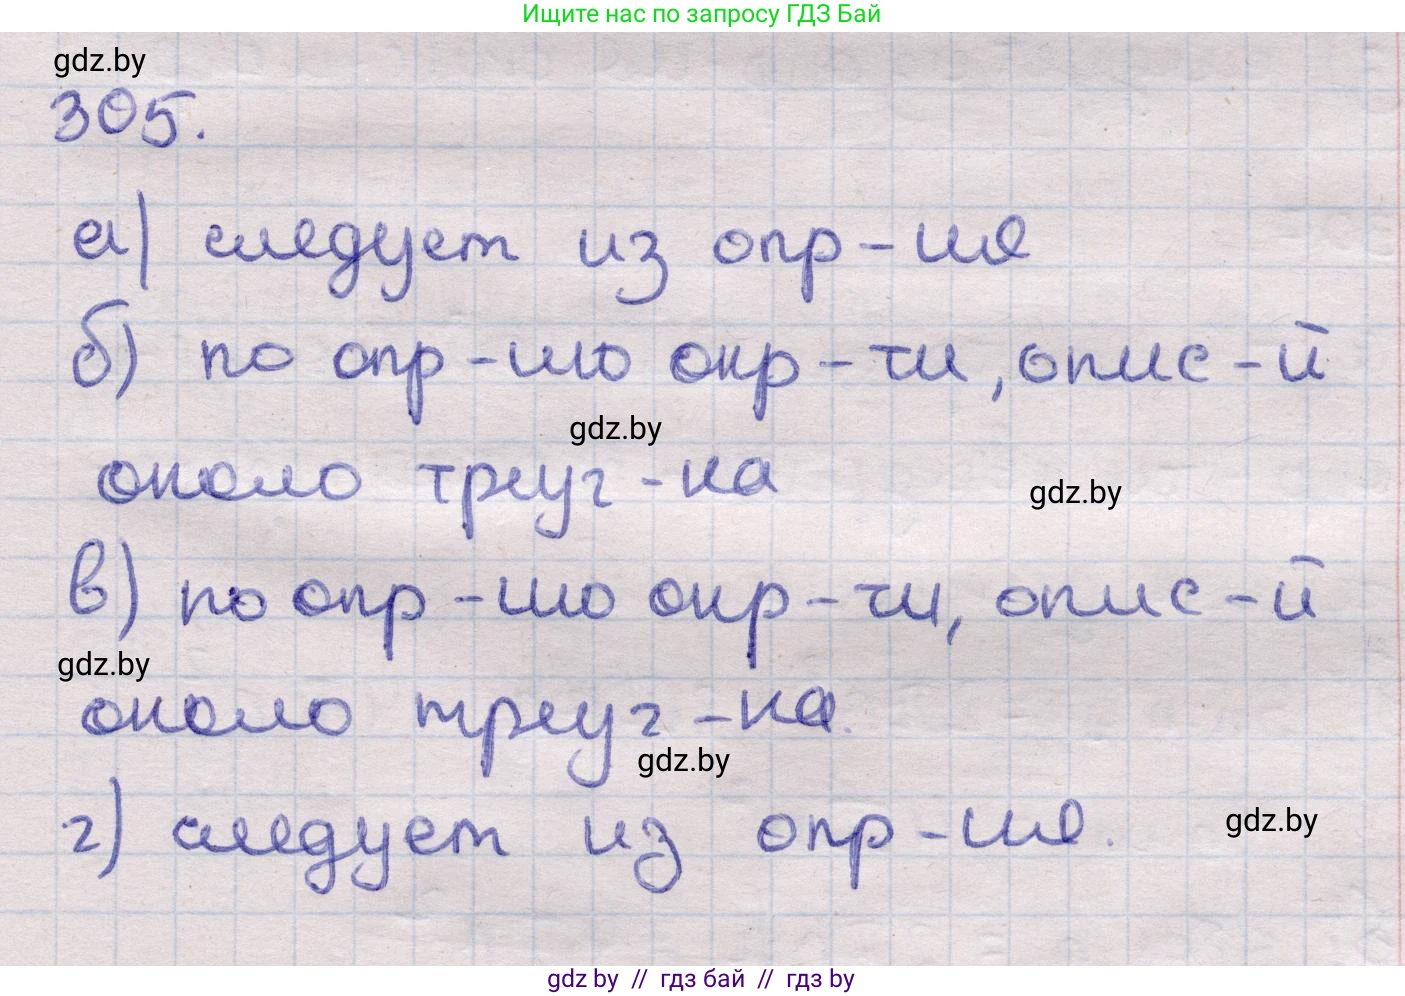 Ищите нас по запросу ГДЗ Бай
gdz.by
305.
а) следует из опр-ия
б) по опр-ию окр-ти, опис-й
gdz.by
около треуг-ка
gdz.by
в) по опр-ию окр-ти, опис-й
gdz.by
около треуг-ка.
gdz.by
г) следует из опр-ия.
gdz.by
gdz.by // гдз бай // гдз by